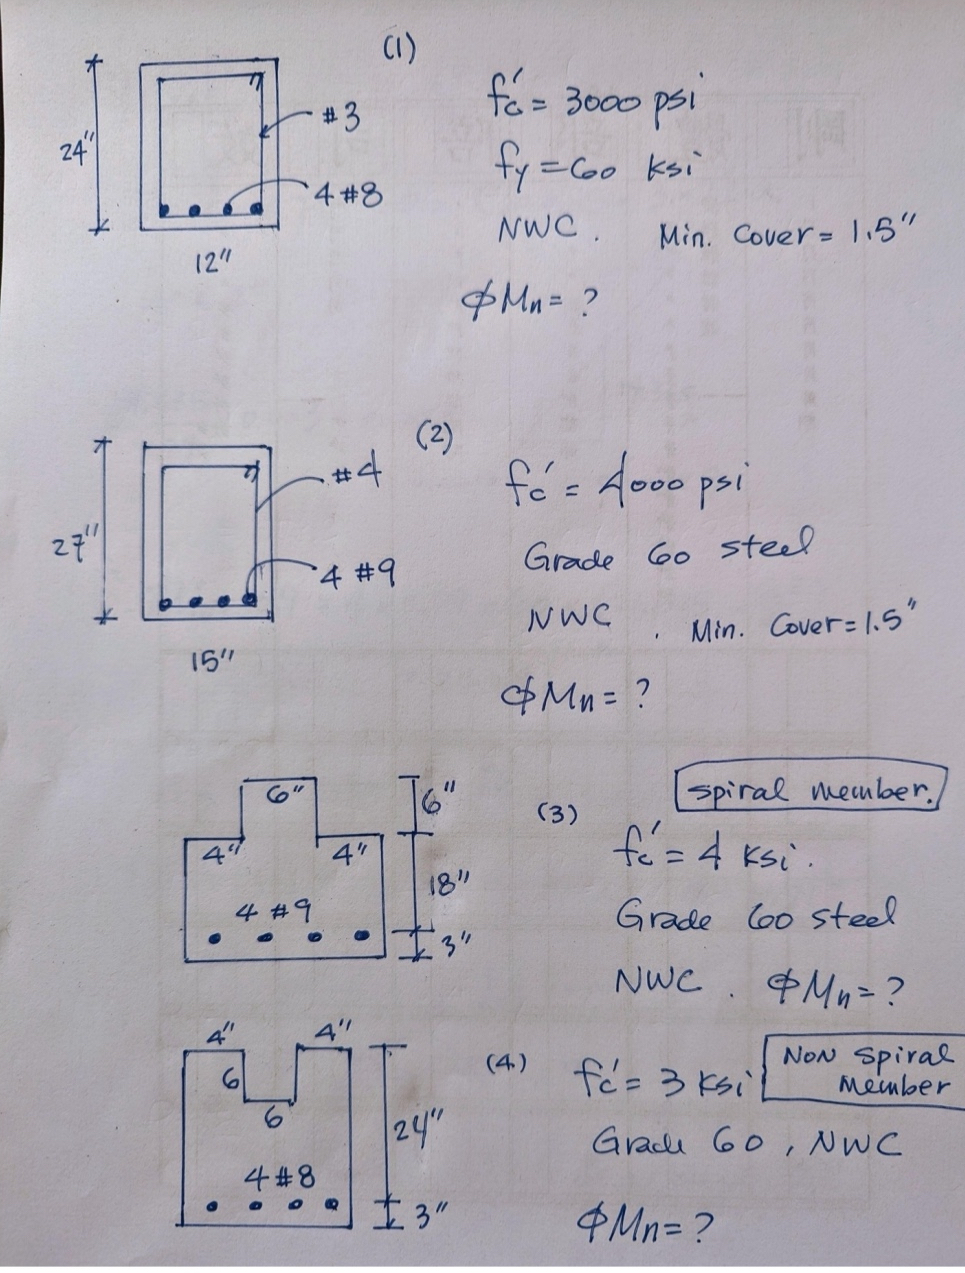 (1)
24"
#3
4 #8
12"
fc' = 3000 psi
fy = 60 ksi
NWC. Min. Cover = 1.5"
ϕMn = ?
(2)
27"
#4
4 #9
15"
fc' = 4000 psi
Grade 60 steel
NWC. Min. Cover = 1.5"
ϕMn = ?
(3)
6"
6"
4" 4"
18"
4 #9
3"
Spiral member.
fc' = 4 ksi.
Grade 60 steel
NWC. ϕMn = ?
(4.)
4" 4"
6
6
24"
4 #8
3"
fc' = 3 ksi
NON Spiral
Member
Grade 60, NWC
ϕMn = ?